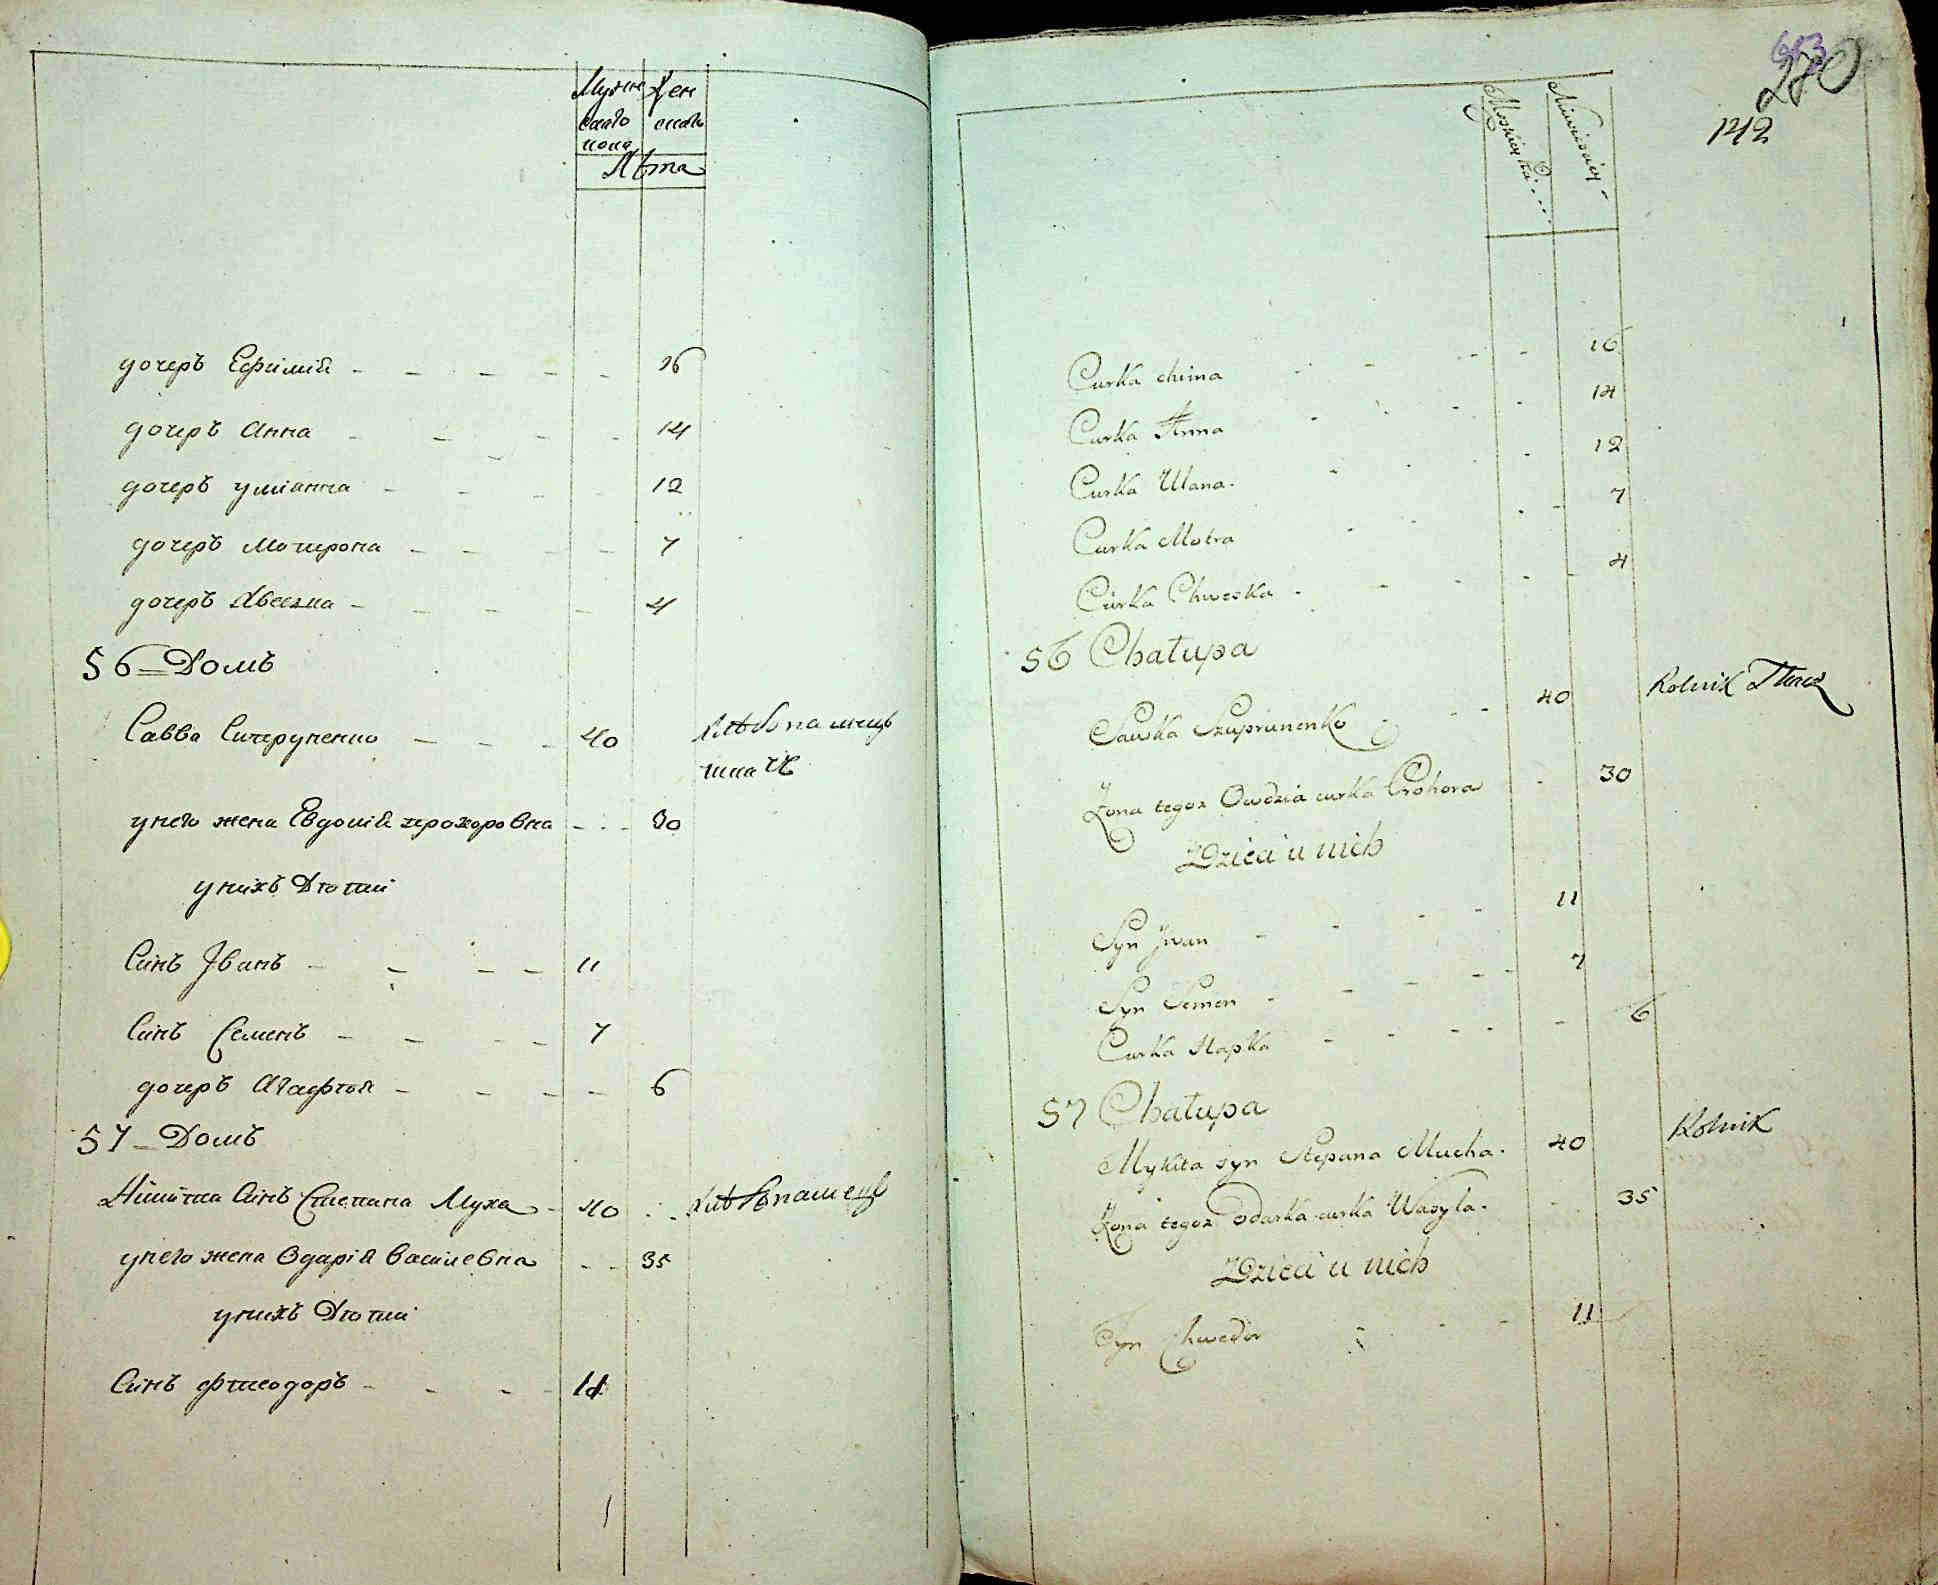 Мужескаго пола
Женскаго
Лѣта
дочеръ Ефимія 16
дочеръ Анна 14
дочеръ Улїанна 12
дочеръ Мотрона 7
дочеръ 4
56 Домъ
Савва Супруненко 40 хлѣбопашецъ
ткачъ
у него жена Евдокія Прохоровна 30
у нихъ Дѣти
Синъ Іванъ 11
Синъ Семенъ 7
дочеръ Агафія 6
57 Домъ
Никита Синъ Степана Муха 40 хлѣбопашецъ
у него жена Одарія Василевна 35
у нихъ Дѣти
Синъ Фтеодоръ 11
280
142
Curka China 16
Curka Anna 14
Curka Ulana 12
Curka Motra 7
Curka Chweska 4
56 Chałupa
Sawka Szuprunenko 40 Rolnik Tkacz
Zona tegoz Owdzia curka Prohora 30
Dzieci u nich
Syn Jwan 11
Syn Semen 7
Curka Hapka 6
57 Chałupa
Mykita syn Stepana Mucha 40 Rolnik
Zona tegoz Odarka curka Wasyla 35
Dzieci u nich
Syn Chwedor 11